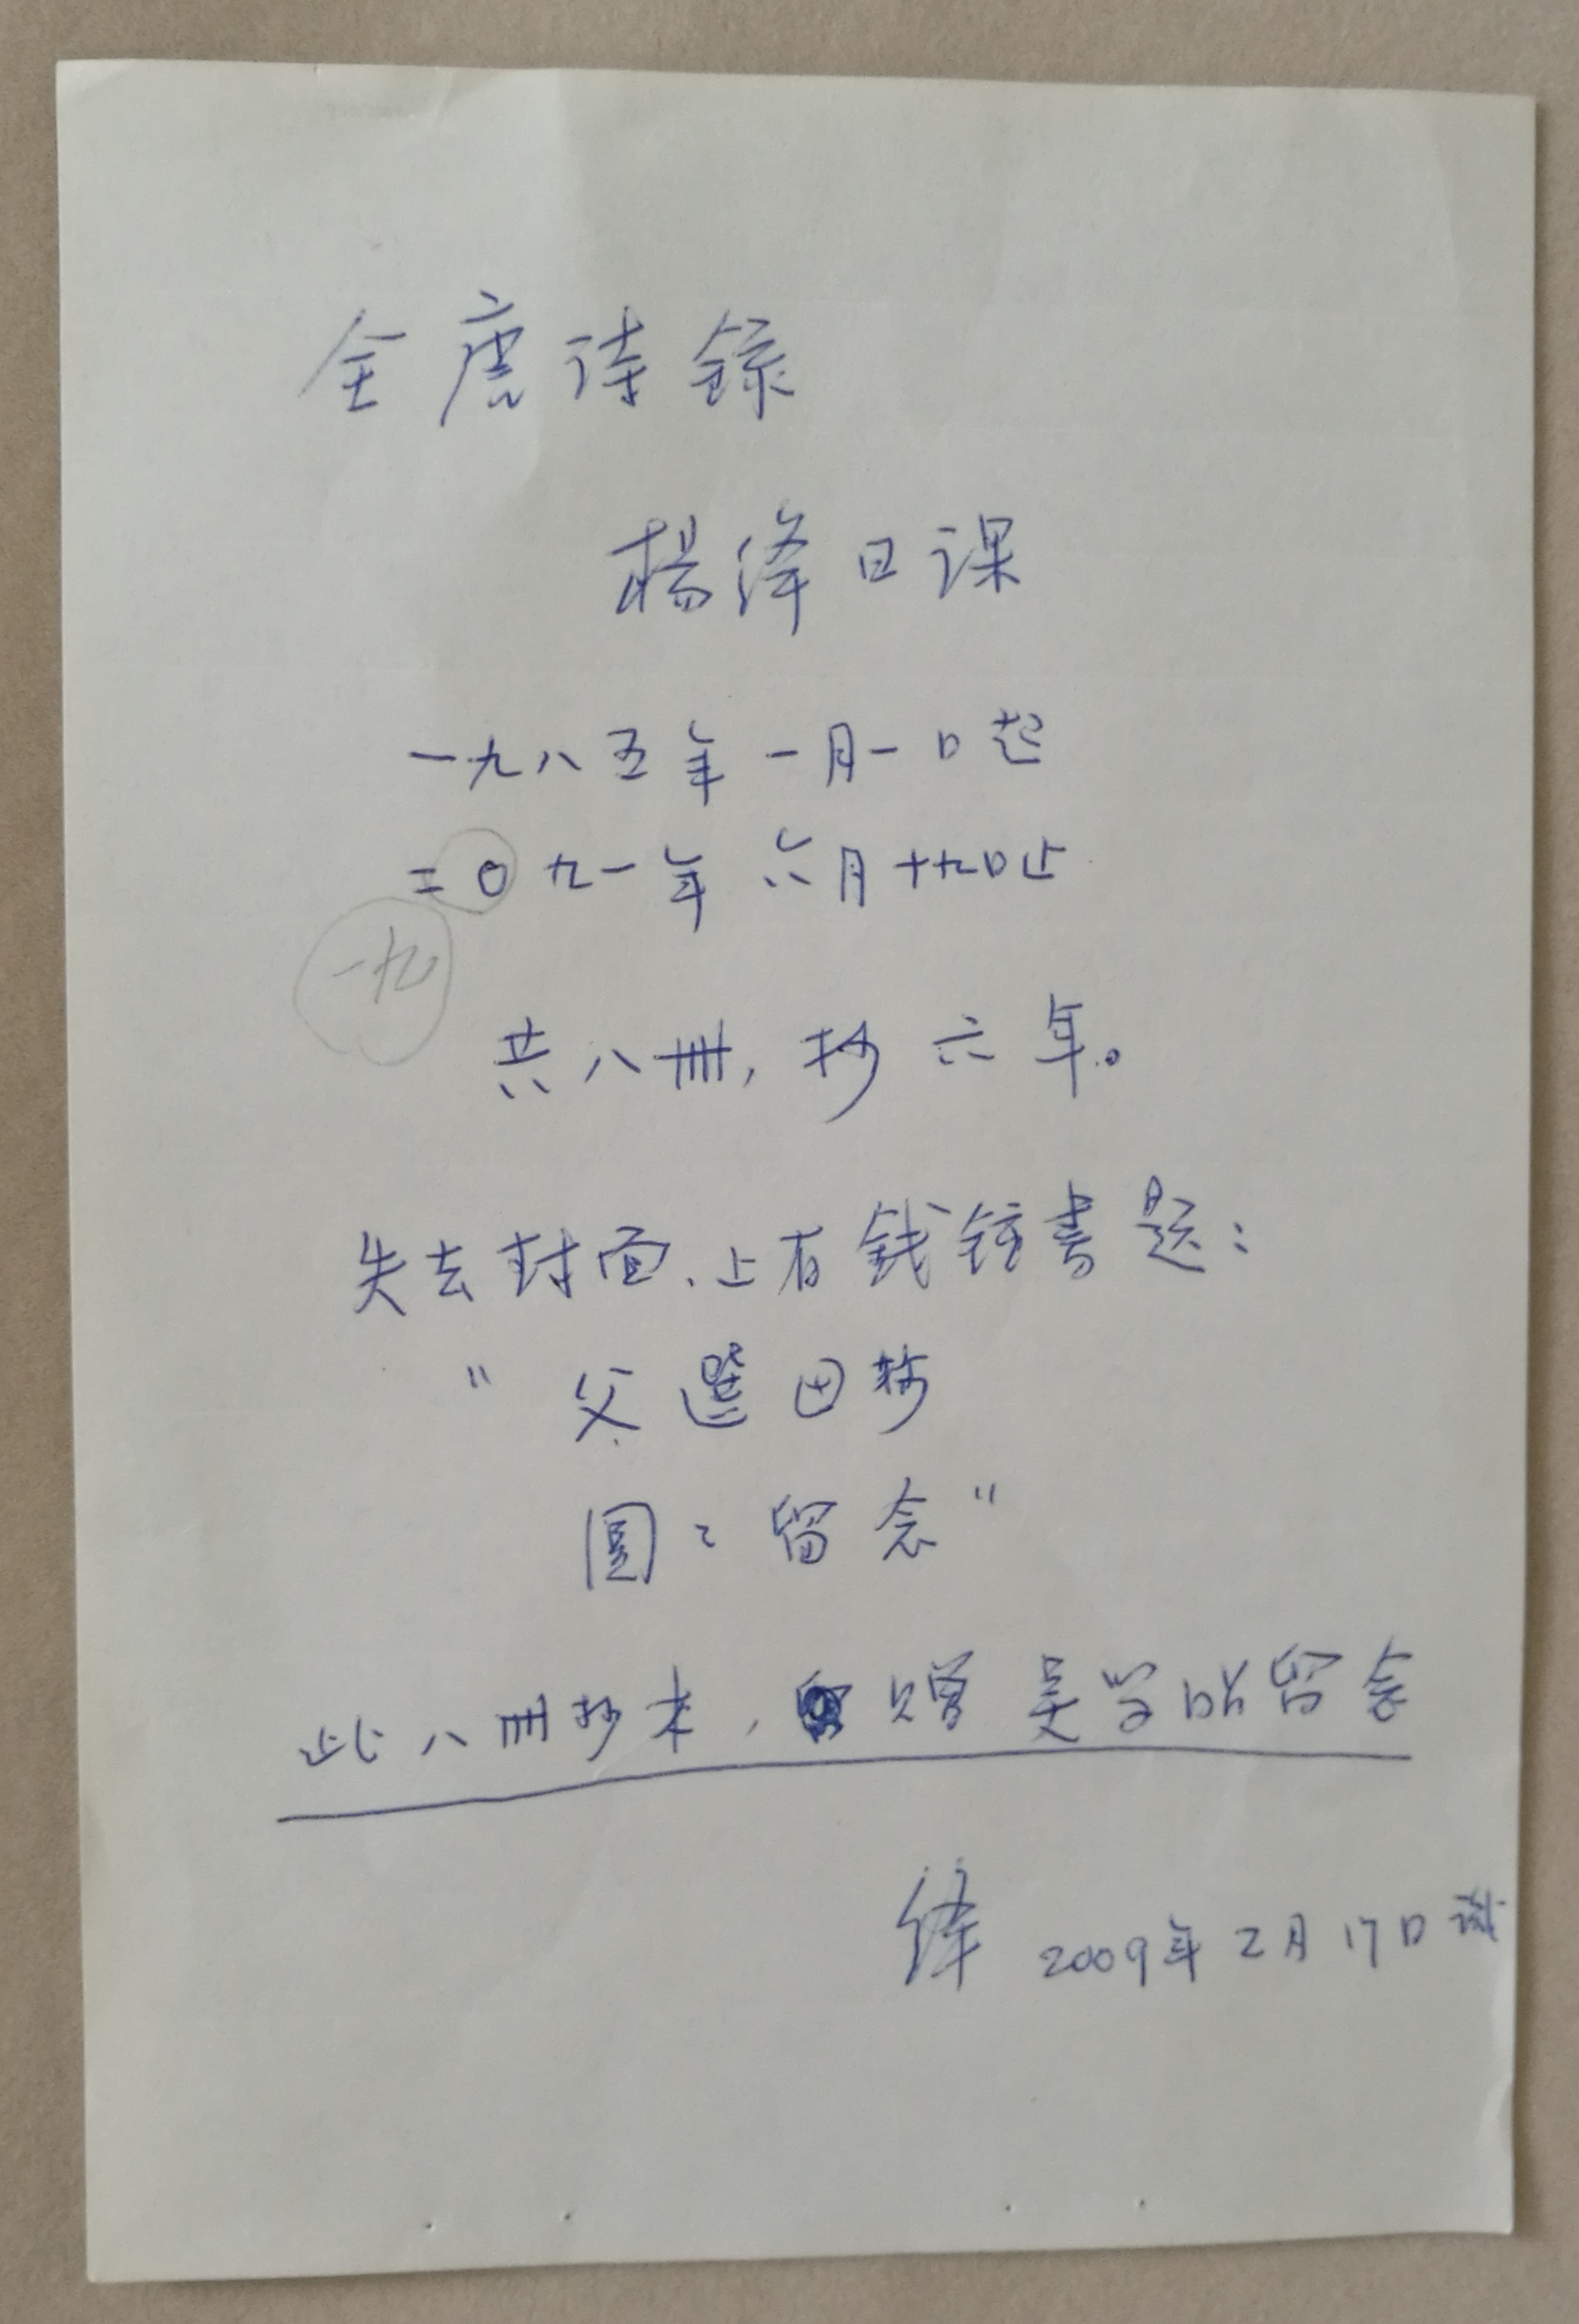 全唐诗錄
楊绛日课
一九八五年一月一日起
二〇九一年六月十九日止
一九
共八冊，抄六年。
失去封面、上有钱锺書题：
“父選母抄
圓〻留念”
此八冊抄本，赠吴学昭留念
绛 2009年2月17日识